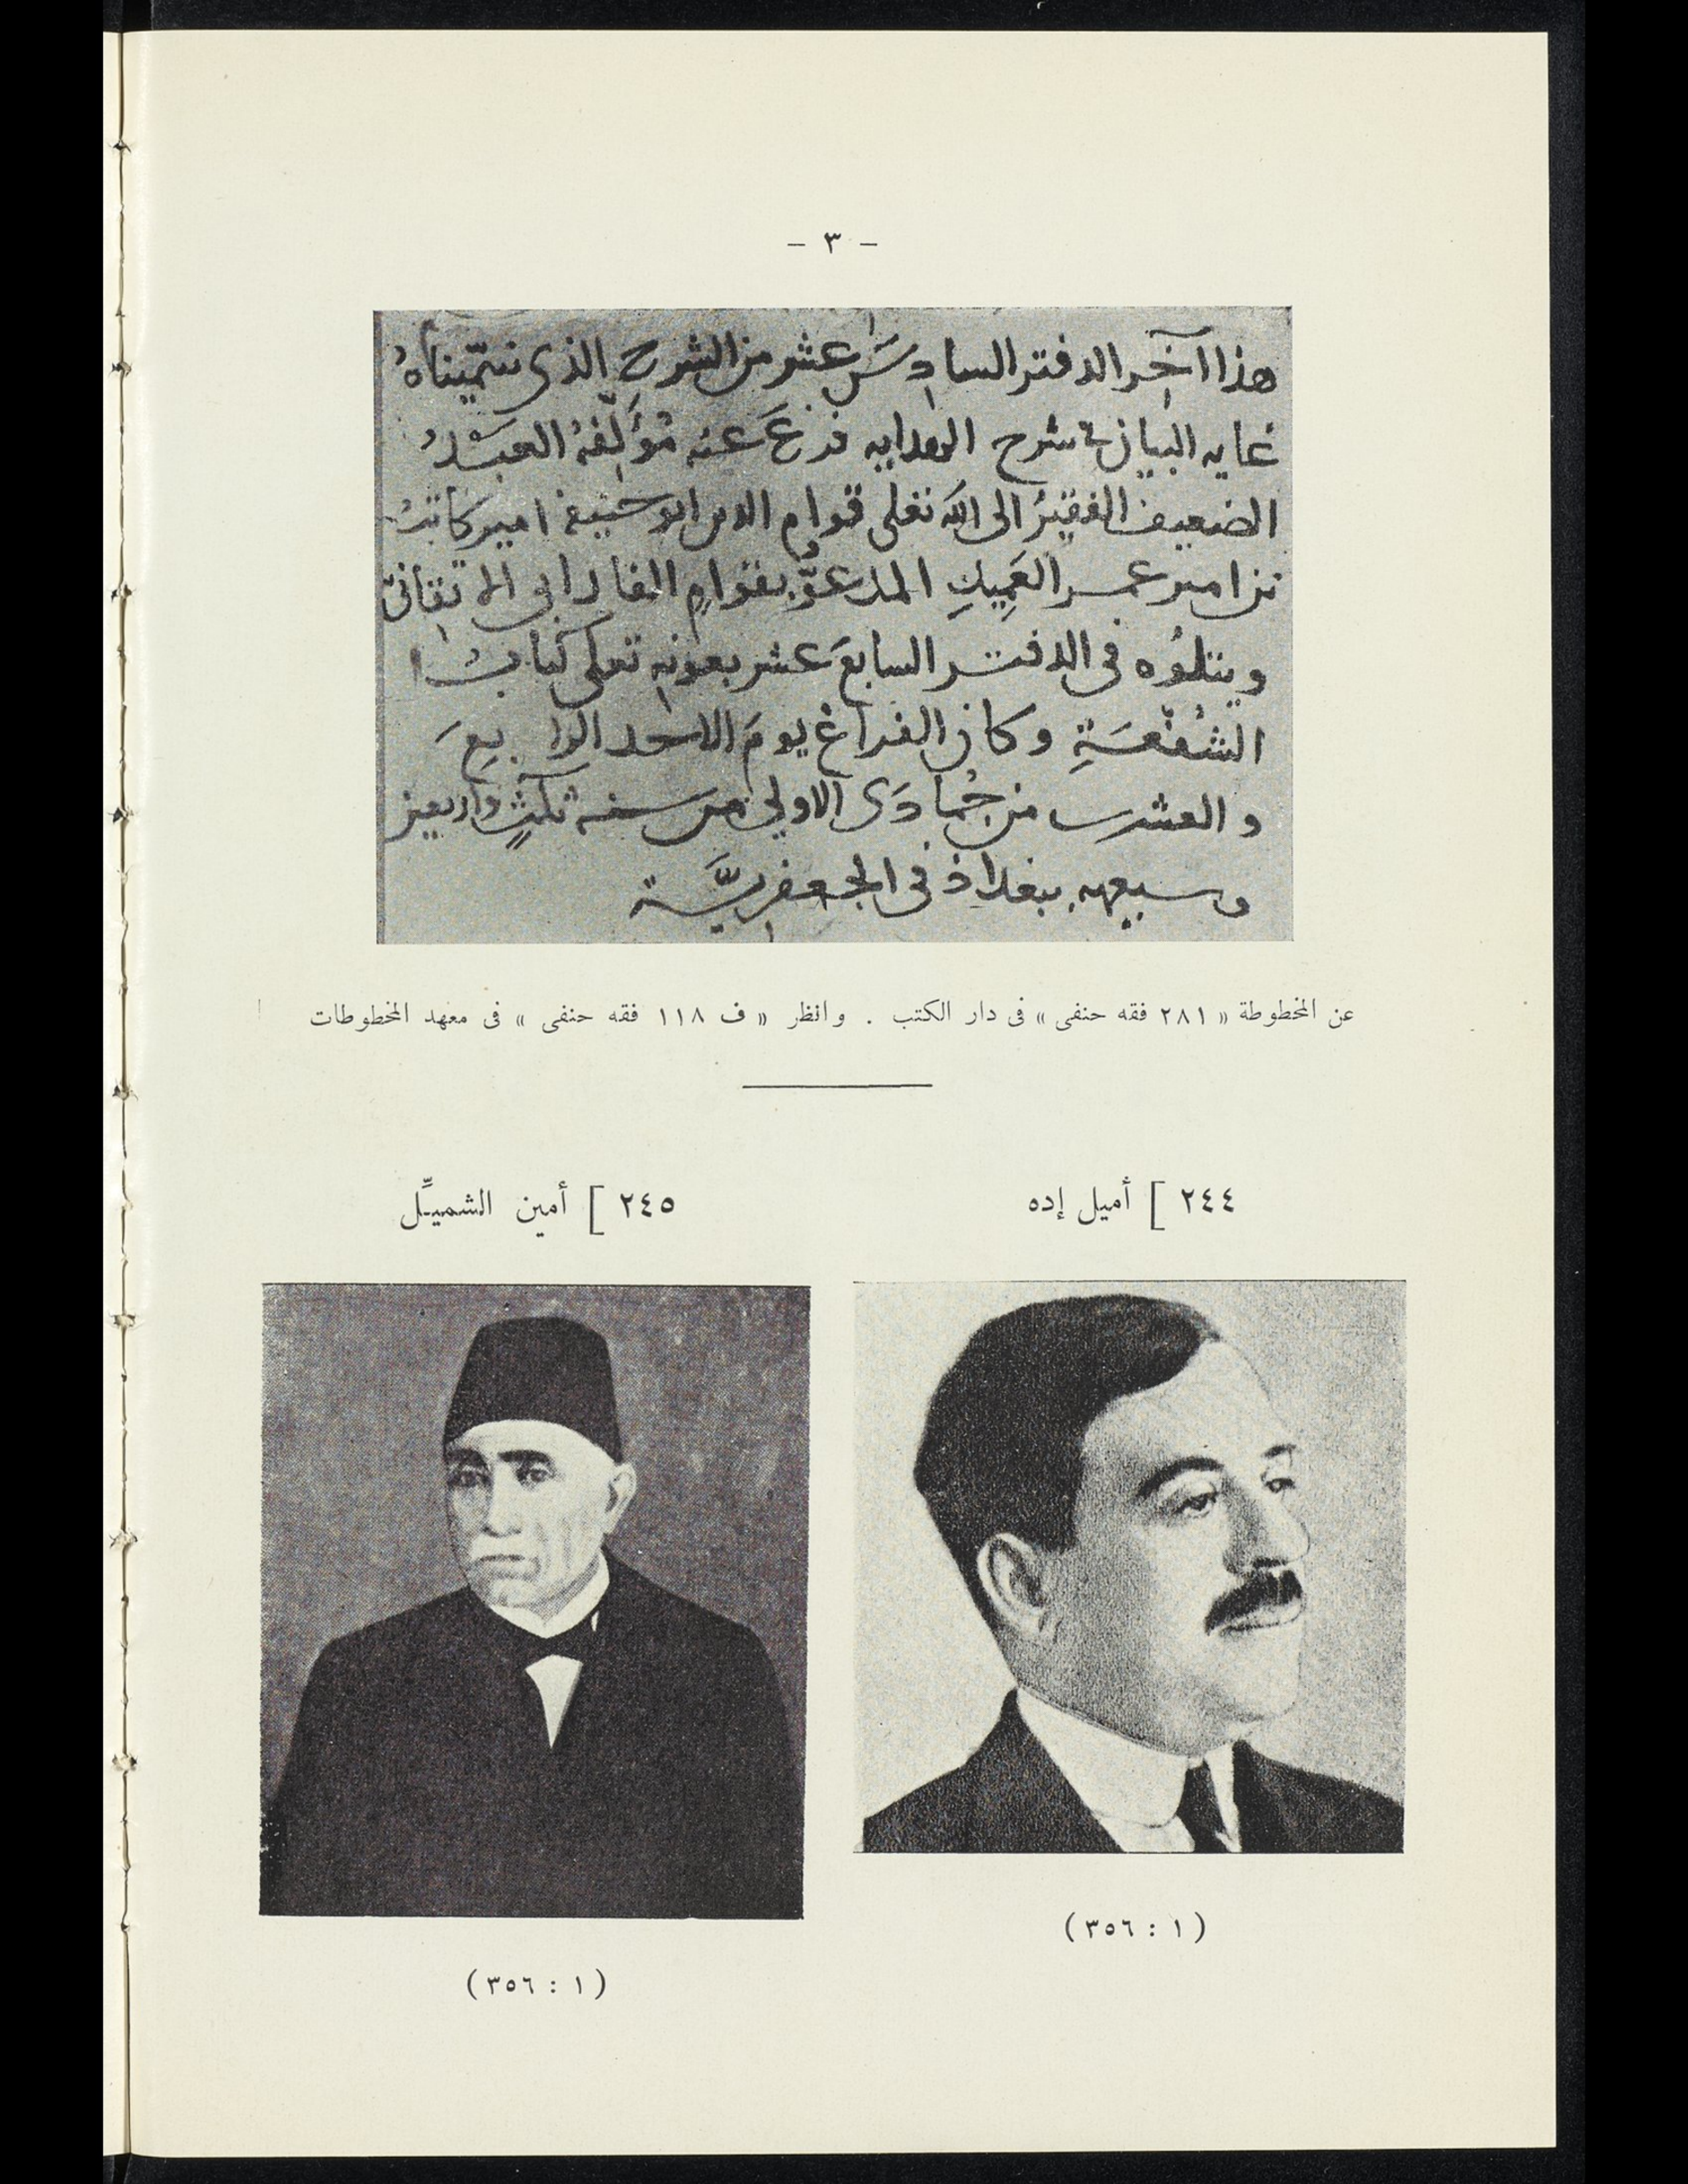 — ٣ —
هذا آخر الدفتر السادسَ عشر من الشرح الذى سَمّيناهُ
غايه البيان فى شرح الهدايه فرغ عنه مُؤَلِّفهُ العَبْدُ
الضعيف الفقيرُ الى الله تعلى قوام الدين ابو حنيفة امير كاتبُ
بن امير عمر العَمِيدِ المدعوُّ بقوامٍ الفارابى الاتقانىّ
ويتلُوه فى الدفتر السابعَ عشر بعونِه تعلى كتابُ
الشُّفْعَةِ وكان الفراغ يومَ الاحد الرابعَ
والعشرين من جُمادَى الاولى من سنه ثلثٍ واربعين
وسبعمه ببغداذ فى الجعفريَّة
عن المخطوطة « ٢٨١ فقه حنفى » فى دار الكتب . وانظر « ف ١١٨ فقه حنفى » فى معهد المخطوطات
٢٤٤ ] أميل إده
٢٤٥ ] أمين الشميِّل
( ١ : ٣٥٦ )
( ١ : ٣٥٦ )